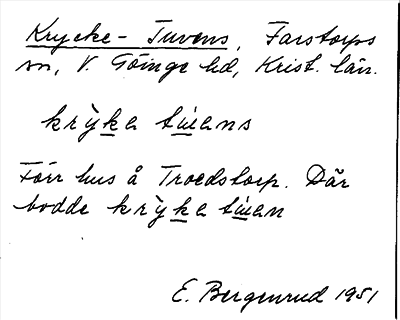 Krycke-Tuvens, Farstorps
sn, V. Göinge hd, Krist. län.
krỳke tùens
Förr hus å Troedstorp. Där
bodde krỳke tùen
E. Bergenrud 1951